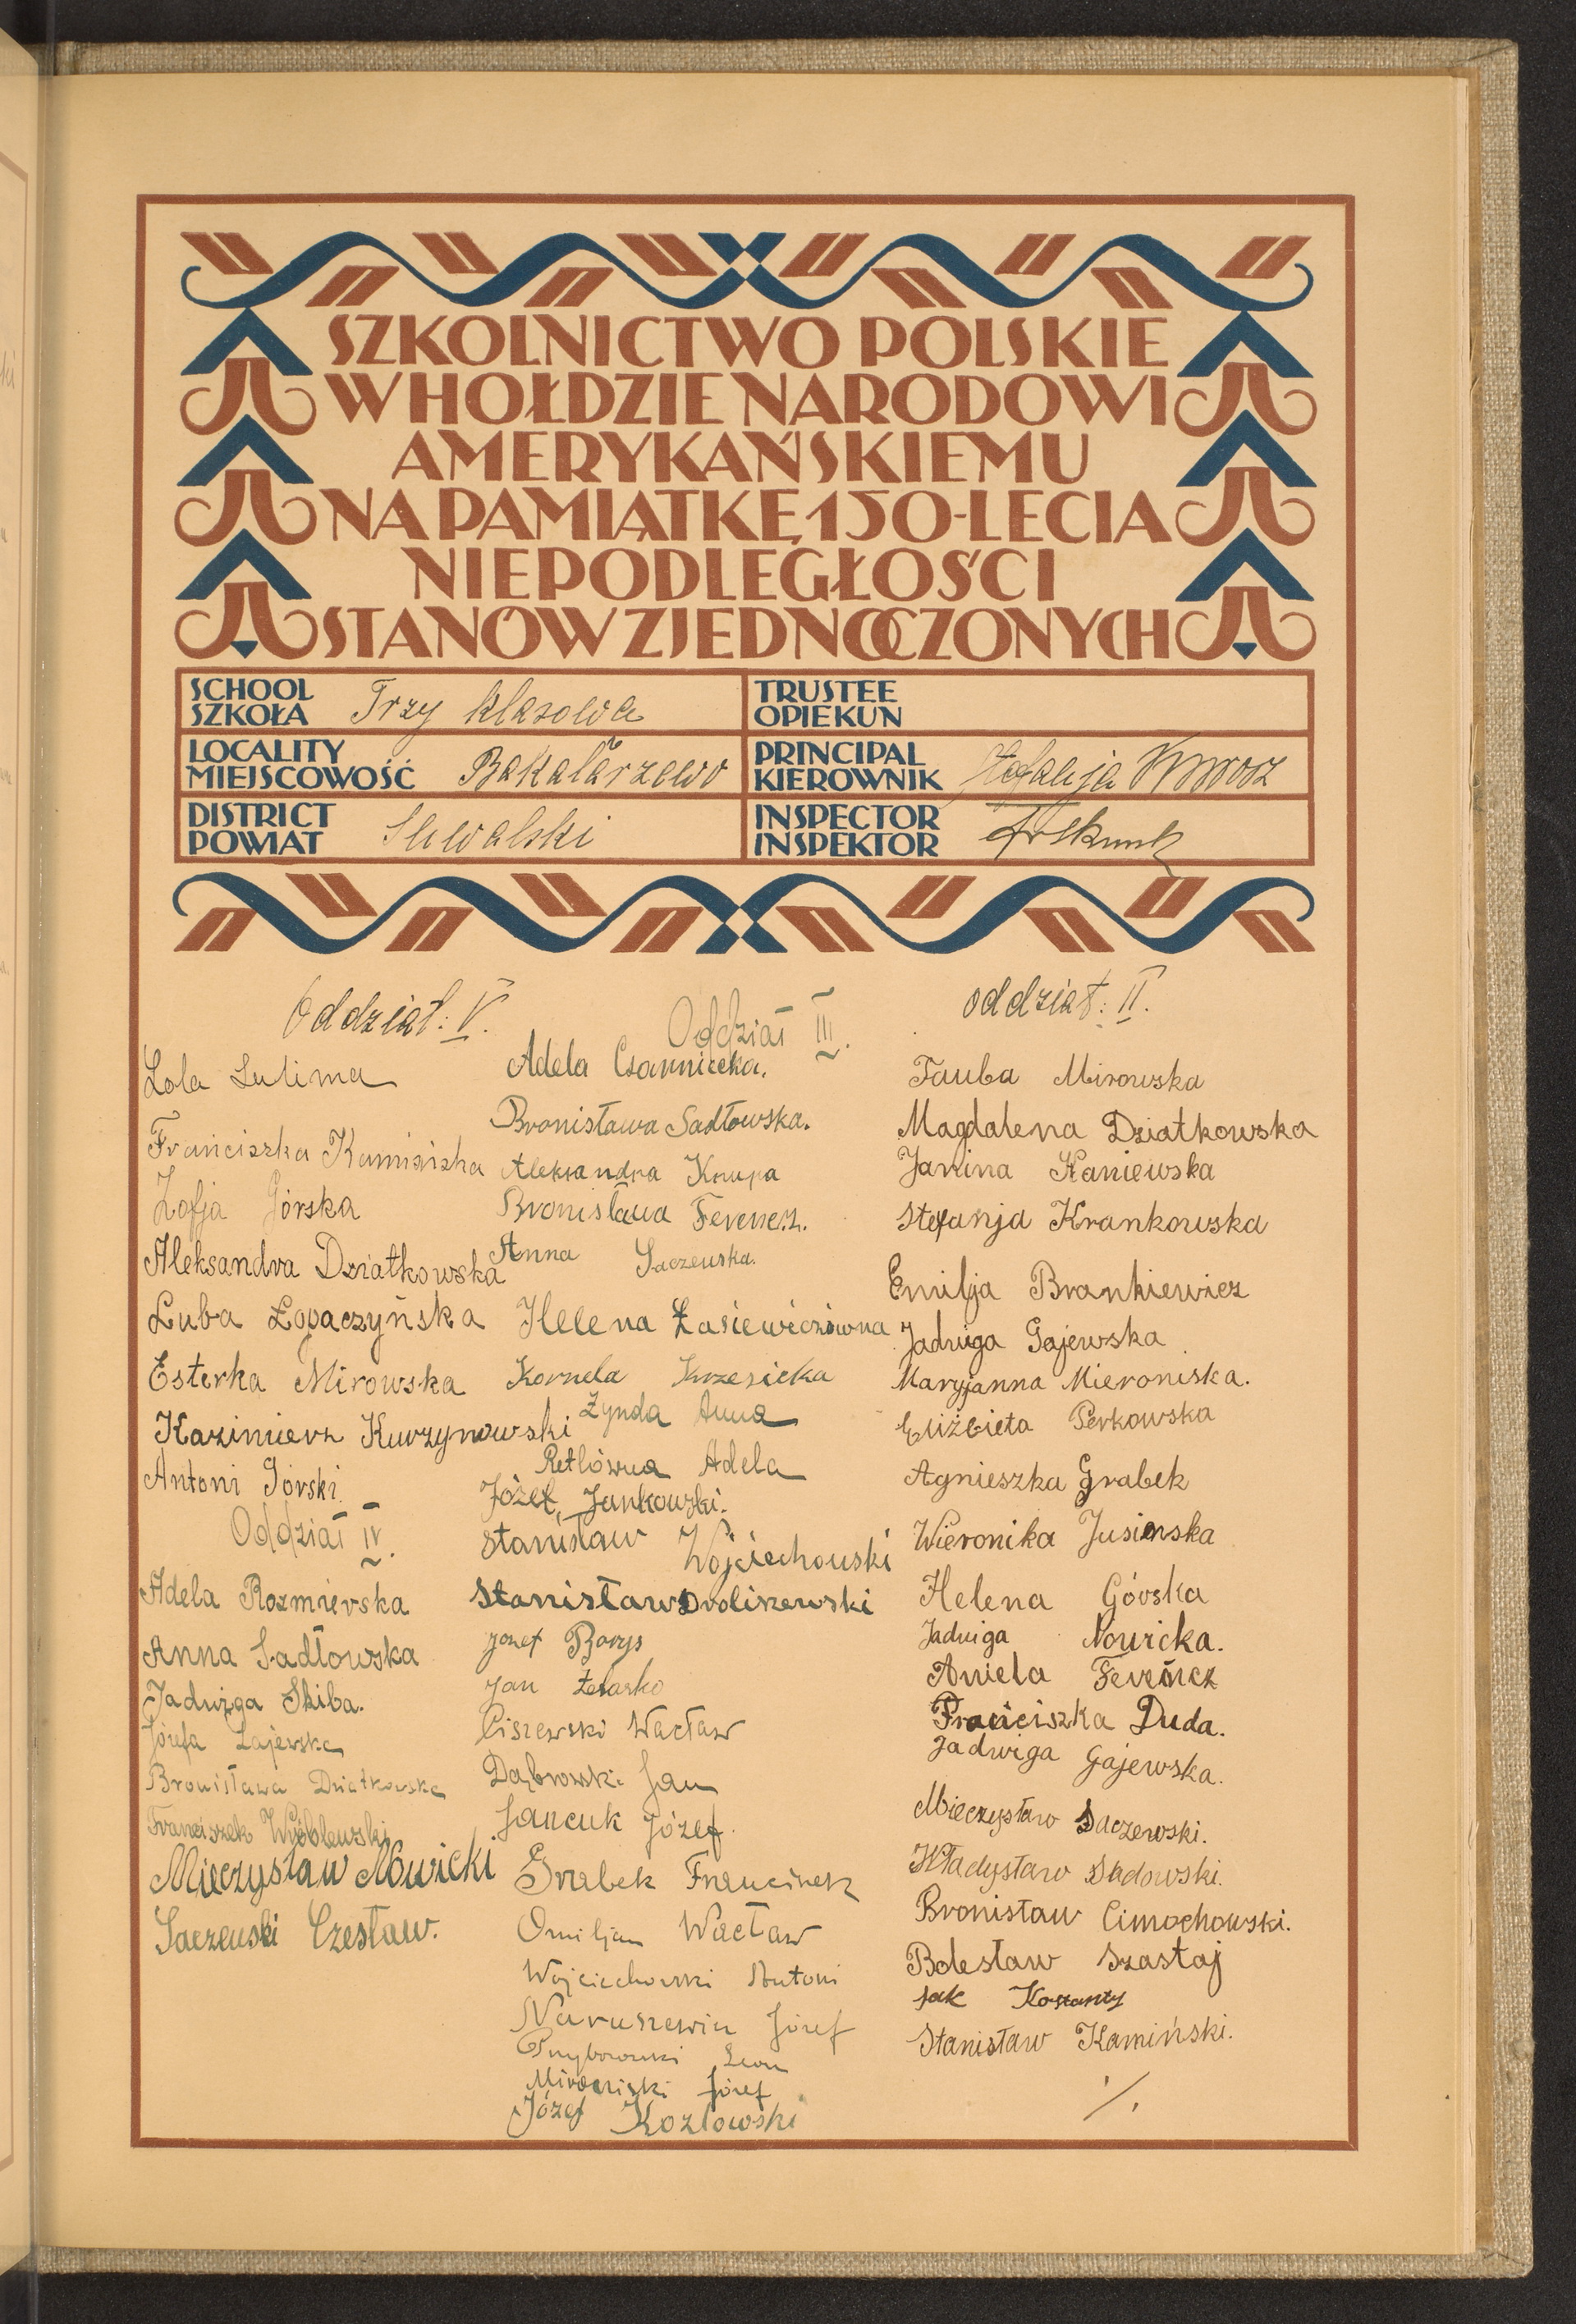 SZKOLNICTWO POLSKIE
W HOŁDZIE NARODOWI
AMERYKAŃSKIEMU
NA PAMIĄTKĘ 150-LECIA
NIEPODLEGŁOŚCI
STANÓW ZJEDNOCZONYCH
SCHOOL
SZKOŁA Trzy klasowa
TRUSTEE
OPIEKUN
LOCALITY
MIEJSCOWOŚĆ Bakałarzewo
PRINCIPAL
KIEROWNIK Stefanja Mmorsz
DISTRICT
POWIAT Suwalski
INSPECTOR
INSPEKTOR
Oddział: V.
Lola Lulima
Franciszka Kamińska
Zofja Górska
Aleksandra Dziatkowska
Luba Łopaczyńska
Esterka Mirowska
Kazimierz Kurzynowski
Antoni Górski
Oddział IV.
Adela Rozmierska
Anna Sadłowska
Jadwiga Skiba.
Józefa Zajewska
Bronisława Dziatkowska
Franciszek Wróblewski
Mieczysław Nowicki
Saczewski Czesław.
Oddział III.
Adela Czarniecka.
Bronisława Sadłowska.
Aleksandra Krupa
Bronisława Ferencz.
Anna Saczewska.
Helena Łasiewiczówna
Kornela Krzesicka
Żynda Anna
Retlówna Adela
Józef Jankowski.
Stanisław Wojciechowski
Stanisław Droliszewski
Józef Borys
Jan Żelazko
Ciszewski Wacław
Dąbrowski Jan
Jancuk Józef.
Grabek Franciszek
Omiljan Wacław
Wojciechowski Antoni
Naruszewicz Józef
Przyborowski Leon
Józef
Józef Kozłowski
oddział: II.
Tauba Mirowska
Magdalena Dziatkowska
Janina Kaniewska
Stefanja Krankowska
Emilja Brankiewicz
Jadwiga Gajewska
Maryjanna Mieroniska.
Eliżbieta Perkowska
Agnieszka Grabek
Wieronika Jusinska
Helena Górska
Jadwiga Nowicka.
Aniela Ferencz
Franciszka Duda.
Jadwiga Gajewska.
Mieczysław Saczewski.
Władysław Sadowski.
Bronisław Cimochowski.
Bolesław Szastaj
Jak Kostanty
Stanisław Kamiński.